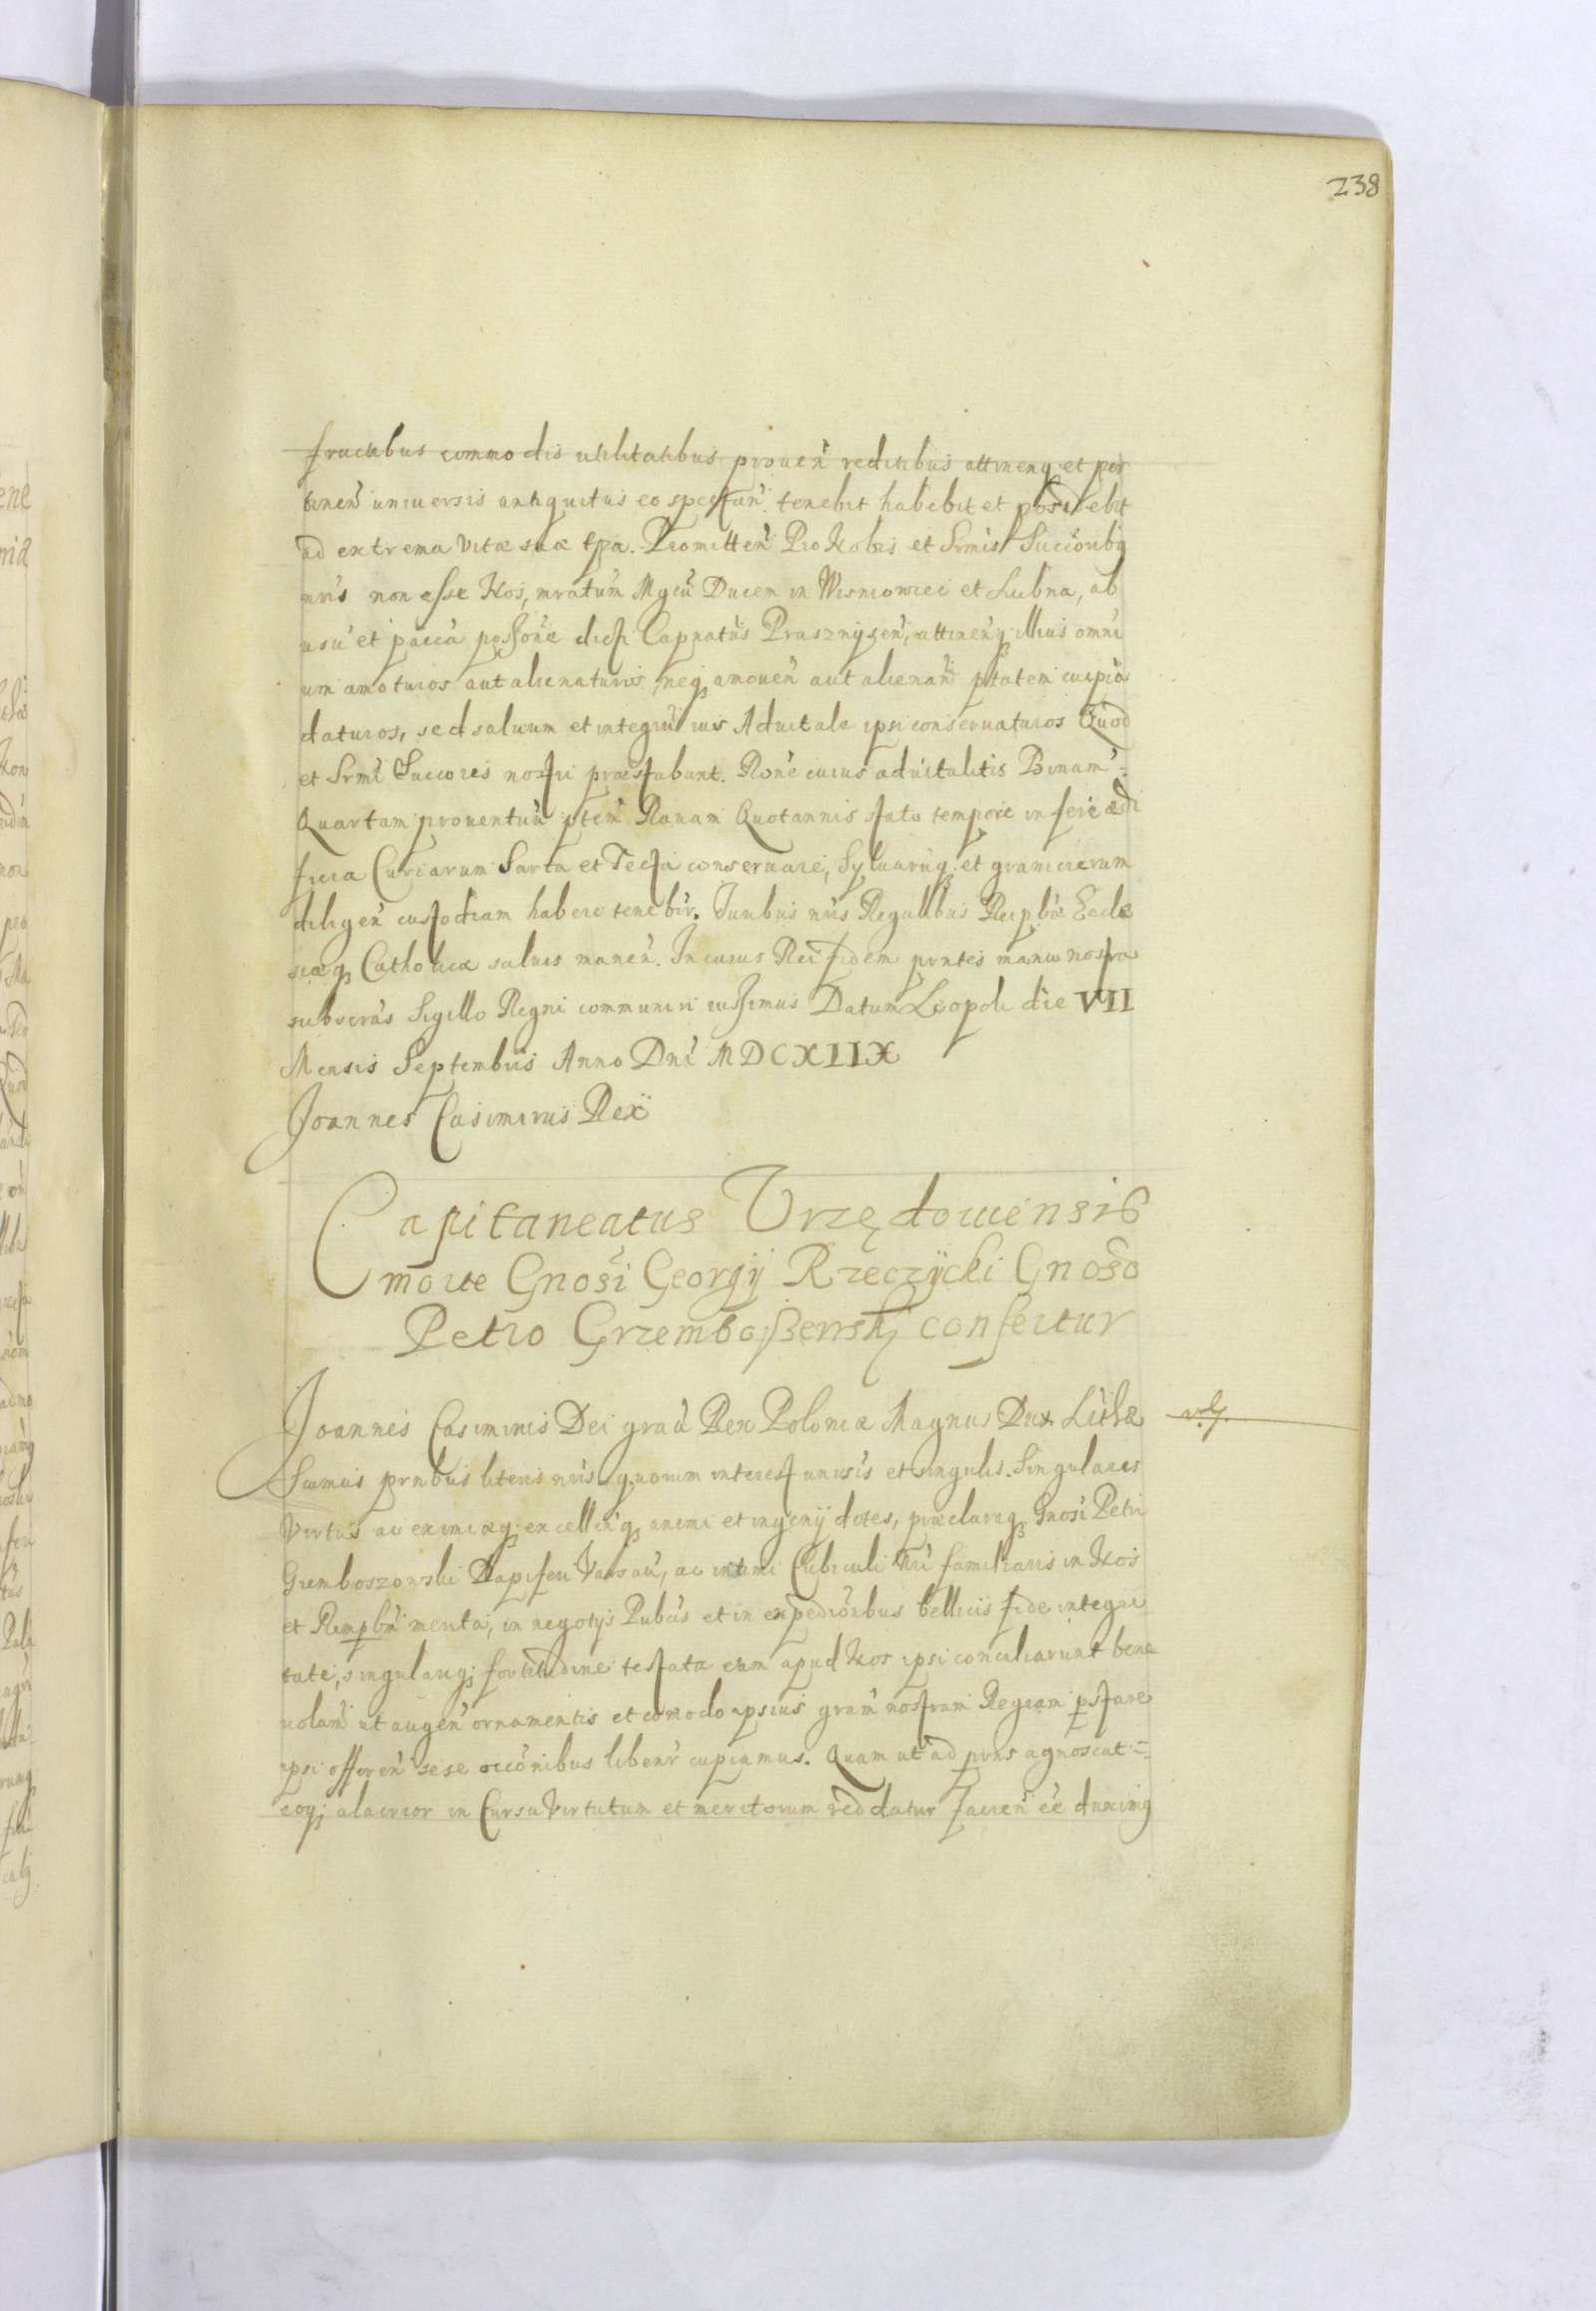 238
fructibus commodis utilitatibus prouen̄ reditibus attinenq; et per
tinen̄ uniuersis antiquitus eo spectan̄ tenebit habebit et possidebit
ad extrema vitæ suæ tp̃a. Promitten̄ Pro Nobis et Srmis Succoribq
nris non esse Nos, mratum Mgcū Ducem in Wisniowiec et Lubna, ab
usu et pacca possone dicti Capnatus Prasznysen̄, attinenq; illius omni
um amoturos aut alienaturos, neq; amouen̄ aut alienan̄ ptatem cuipia
daturos, sed saluum et integrū ius Aduitale ipsi conseruaturos Quod
et Srmi Succores nostri præstabunt. Rone cuius aduitalitis Binam
Quartam prouentuū pten̄ Rauam Quotannis stato tempore inferē ædi
ficia Curiarum Sarta et Tecta conseruare, Syluarūq; et granicierum
diligen̄ custodiam habere tenebir. Iuribus nris Regalibus Reipbcæ Eccle
siæq; Catholicæ saluis manen̄. In cuius Rei fidem pntes manu nostra
subscras Sigillo Regni communiri iussimus Datum Leopoli die VII
Mensis Septembris Anno Dni MDCXIIX
Joannes Casimirus Rex
Capitaneatus Urzędowiensis
morte Gnosi Georgij Rzeczycki Gnoso
Petro Grzemboszewski confertur
Joannes Casimirus Dei grāa Rex Poloniæ Magnus Dux Lithæ
Scimus prnbus literis nris quorum interest unisis et singulis. Singulares
Virtus ac eximiæq; excellenq; animi et ingenij dotes, præclaraq; Gnosi Petri
Gremboszowski Dapiferi Varsau, ac intimi Cubiculi Nri familiaris in Nos
et Rempbm merita, in negotijs Pubcis et in expedionibus bellicis fide integri
tate, singulariq; fortitudine testata eam apud Nos ipsi conciliarunt bene
uolam̄ ut augen̄ ornamentis et comodo ipsius gram̄ nostram Regiam pstare
ipsi offeren̄ sese occonibus libenr cupiamus. Quam ut ad pnns agnoscat
eoq; alacrior in Cursu Virtutum et meritorum reddatur facien̄ ee duximq